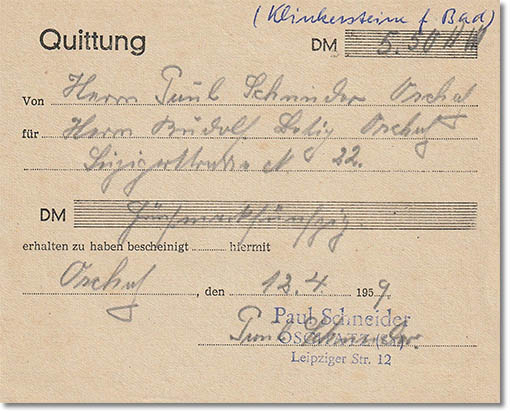 (Klinkersteine f. Bad)
Quittung DM 5.50
Von Herrn Paul Schneider Oschatz
für Herrn Rudolf Oschatz
22.
DM Fünfmarkfünfzig
erhalten zu haben bescheinigt hiermit
Oschatz, den 12.4 1959.
Paul Schneider
Paul Schneider.
OSCHATZ
Leipziger Str. 12